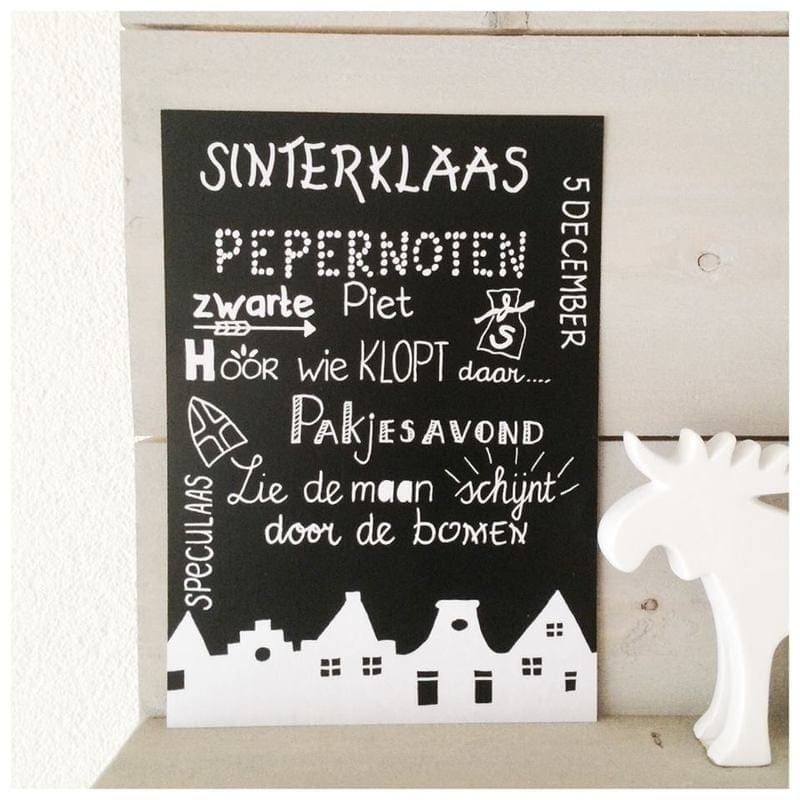 SINTERKLAAS
5 DECEMBER
PEPERNOTEN
zwarte Piet
S
HOOR wie KLOPT daar....
PAKJESAVOND
SPECULAAS
Zie de maan schijnt
door de bomen